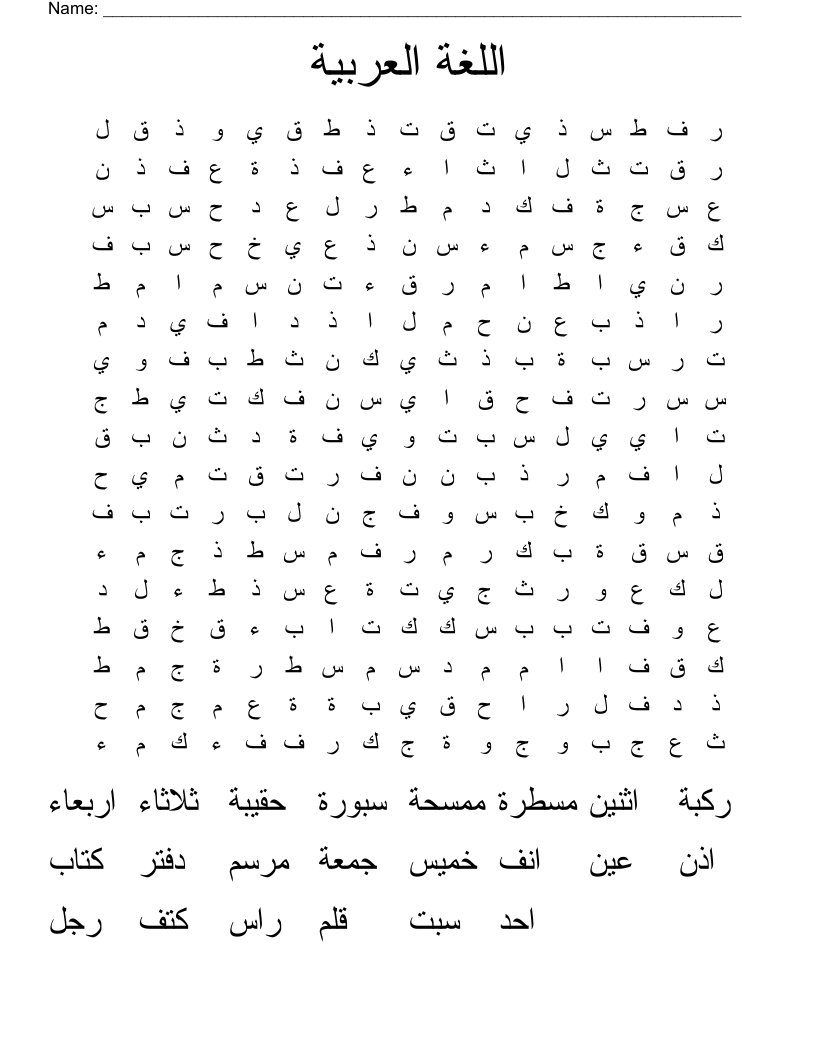 Name:
اللغة العربية
ر ف ط س ذ ي ت ق ت ذ ط ق ي و ذ ق ل
ر ق ت ث ل ا ث ا ء ع ف ذ ة ع ف ذ ن
ع س ج ة ف ك د م ط ر ل ع د ح س ب س
ك ق ء ج س م ء س ن ذ ع ي خ ح س ب ف
ر ن ي ا ط ا م ر ق ء ت ن س م ا م ط
ر ا ذ ب ع ن ح م ل ا ذ د ا ف ي د م
ت ر س ب ة ب ذ ث ي ك ن ث ط ب ف و ي
س س ر ت ف ح ق ا ي س ن ف ك ت ي ط ج
ت ا ي ي ل س ب ت و ي ف ة د ث ن ب ق
ل ا ف م ر ذ ب ن ن ف ر ت ق ت م ي ح
ذ م و ك خ ب س و ف ج ن ل ب ر ت ب ف
ق س ق ة ب ك ر م ر ف م س ط ذ ج م ء
ل ك ع و ر ث ج ي ت ة ع س ذ ط ء ل د
ع و ف ت ب ب س ك ك ت ا ب ء ق خ ق ط
ك ق ف ا ا م م د س م س ط ر ة ج م ط
ذ د ف ل ر ا ح ق ي ب ة ة ع م ج م ح
ث ع ج ب و ج و ة ج ك ر ف ف ء ك م ء
ركبة اثنين مسطرة ممسحة سبورة حقيبة ثلاثاء اربعاء
اذن عين انف خميس جمعة مرسم دفتر كتاب
احد سبت قلم راس كتف رجل